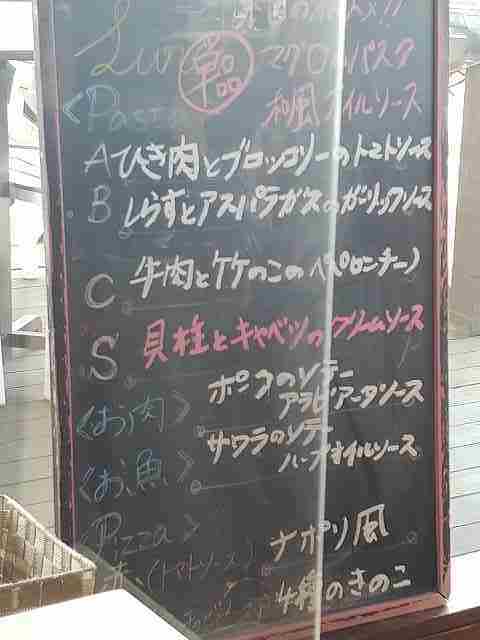 単品
マグロのパスタ
和風オイルソース
<Pasta
A ひき肉とブロッコリーのトマトソース
B しらすとアスパラガスのガーリックソース
C 牛肉とタケのこのペペロンチーノ
S 貝柱とキャベツのクリームソース
<お肉> ポークのソテー
アラビアータソース
<お魚> サワラのソテー
ハーブオイルソース
<Pizza>
赤(トマトソース) ナポリ風
4種のきのこ